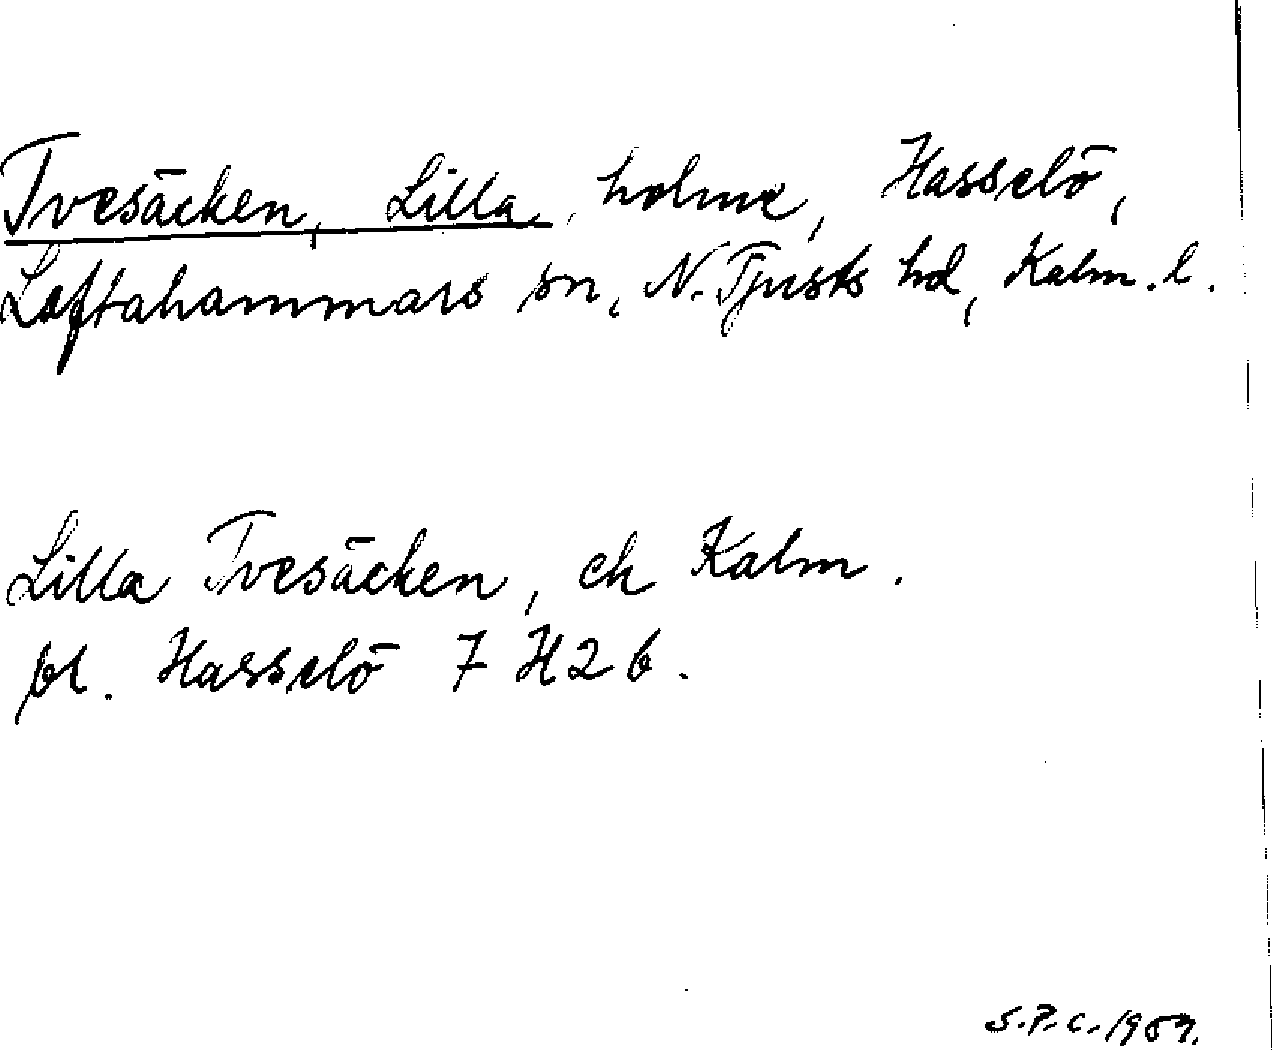 Tvesäcken, Lilla, holme, Hasselö,
Loftahammars sn, N. Tjusts hd, Kalm. l.
Lilla Tvesäcken, ek Kalm.
bl. Hasselö 7 H2b.
S.P.C. 1957.